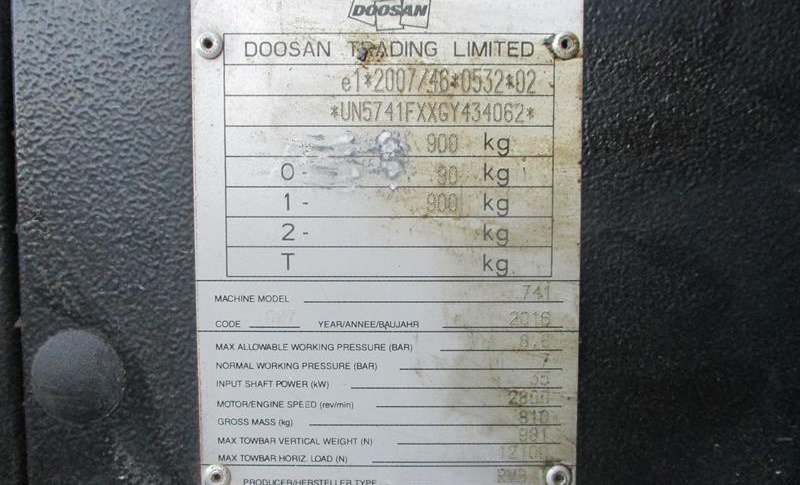 DOOSAN
DOOSAN TRADING LIMITED
e1*2007/46*0532*02
*UN5741FXXGY434062*
900 kg
0- 90 kg
1- 900 kg
2- kg
T kg
MACHINE MODEL 741
CODE YEAR/ANNEE/BAUJAHR 2016
MAX ALLOWABLE WORKING PRESSURE (BAR)
NORMAL WORKING PRESSURE (BAR) 7
INPUT SHAFT POWER (kW) 35
MOTOR/ENGINE SPEED (rev/min)
GROSS MASS (kg) 810
MAX TOWBAR VERTICAL WEIGHT (N) 991
MAX TOWBAR HORIZ. LOAD (N) 12100
PRODUCER/HERSTELLER TYPE